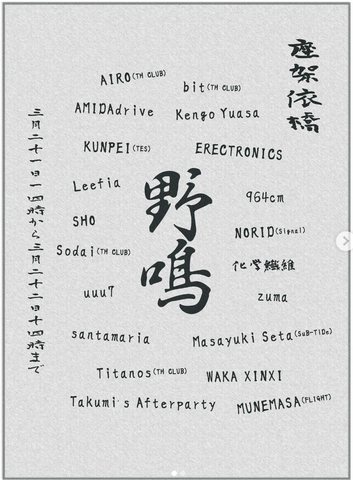 座架依橋
AIRO(TH CLUB)
bit(TH CLUB)
AMIDAdrive
Kengo Yuasa
KUNPEI(TES)
ERECTRONICS
Leefia
964cm
SHO
NORID(Signal)
Sodai(TH CLUB)
化学繊維
uuu7
zuma
santamaria
Masayuki Seta(SuB-TIDe)
Titanos(TH CLUB)
WAKA XINXI
Takumi's Afterparty
MUNEMASA(FLIGHT)
野鳴
三月二十一日一四時から三月二十二日十四時まで